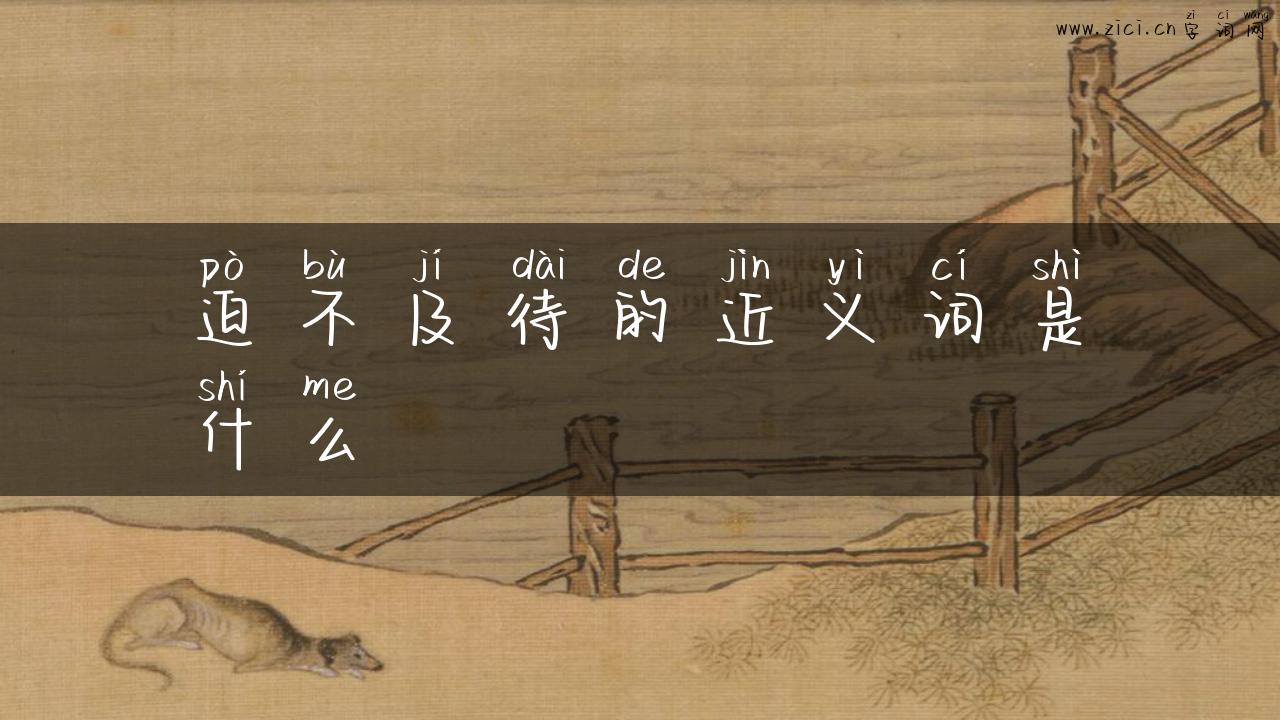 zì cí wǎng
www.zici.cn 字词网
pò bù jí dài de jìn yì cí shì
迫不及待的近义词是
shí me
什么